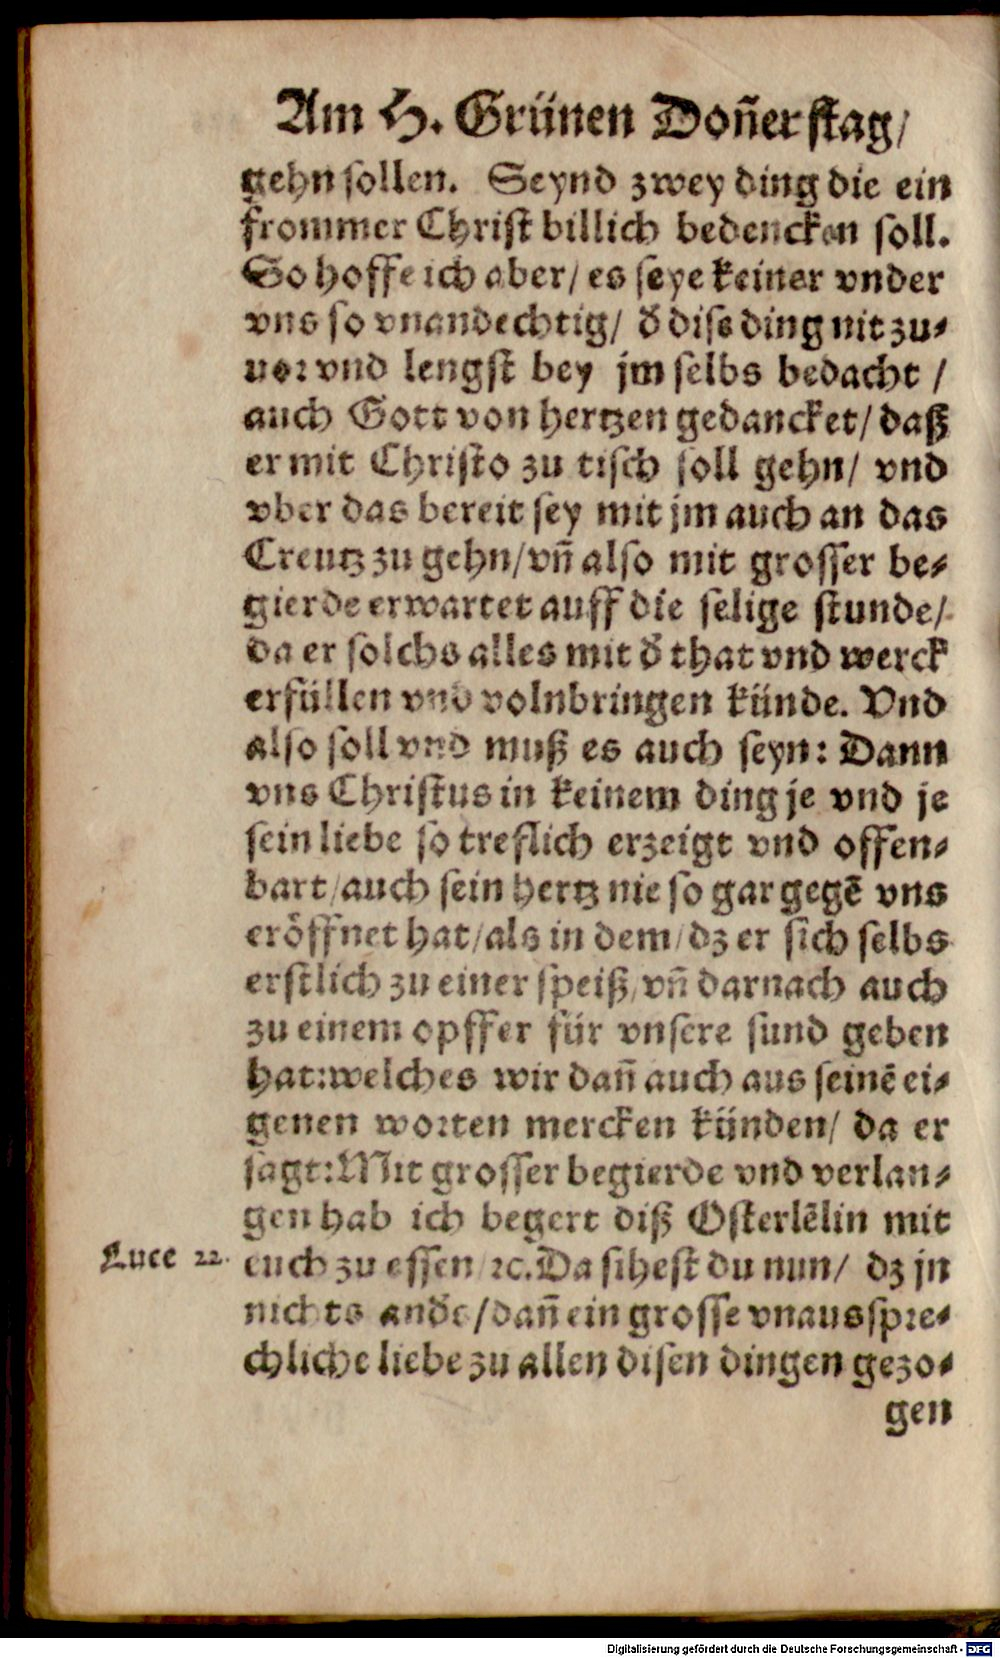 Am H. Grünen Doñerstag/
gehn sollen. Seynd zwey ding die ein
frommer Christ billich bedencken soll.
So hoffe ich aber/ es seye keiner vnder
vns so vnandechtig/ d̄ dise ding nit zu⸗
uor vnd lengst bey jm selbs bedacht /
auch Gott von hertzen gedancket/ daß
er mit Christo zu tisch soll gehn/ vnd
vber das bereit sey mit jm auch an das
Creutz zu gehn/ vñ also mit grosser be⸗
gierde erwartet auff die selige stunde/
da er solchs alles mit d̄ that vnd werck
erfüllen vnd volnbringen künde. Vnd
also soll vnd muß es auch seyn: Dann
vns Christus in keinem ding je vnd je
sein liebe so treflich erzeigt vnd offen⸗
bart/ auch sein hertz nie so gar gegē vns
eröffnet hat/ als in dem/ dz er sich selbs
erstlich zu einer speiß/ vñ darnach auch
zu einem opffer für vnsere sund geben
hat: welches wir dañ auch aus seinē ei⸗
genen worten mercken künden/ da er
sagt: Mit grosser begierde vnd verlan⸗
gen hab ich begert diß Osterlēlin mit
Luce 22. euch zu essen ꝛc. Da sihest du nun/ dz jn
nichts and̄s/ dañ ein grosse vnausspre⸗
chliche liebe zu allen disen dingen gezo⸗
gen
Digitalisierung gefördert durch die Deutsche Forschungsgemeinschaft - DFG